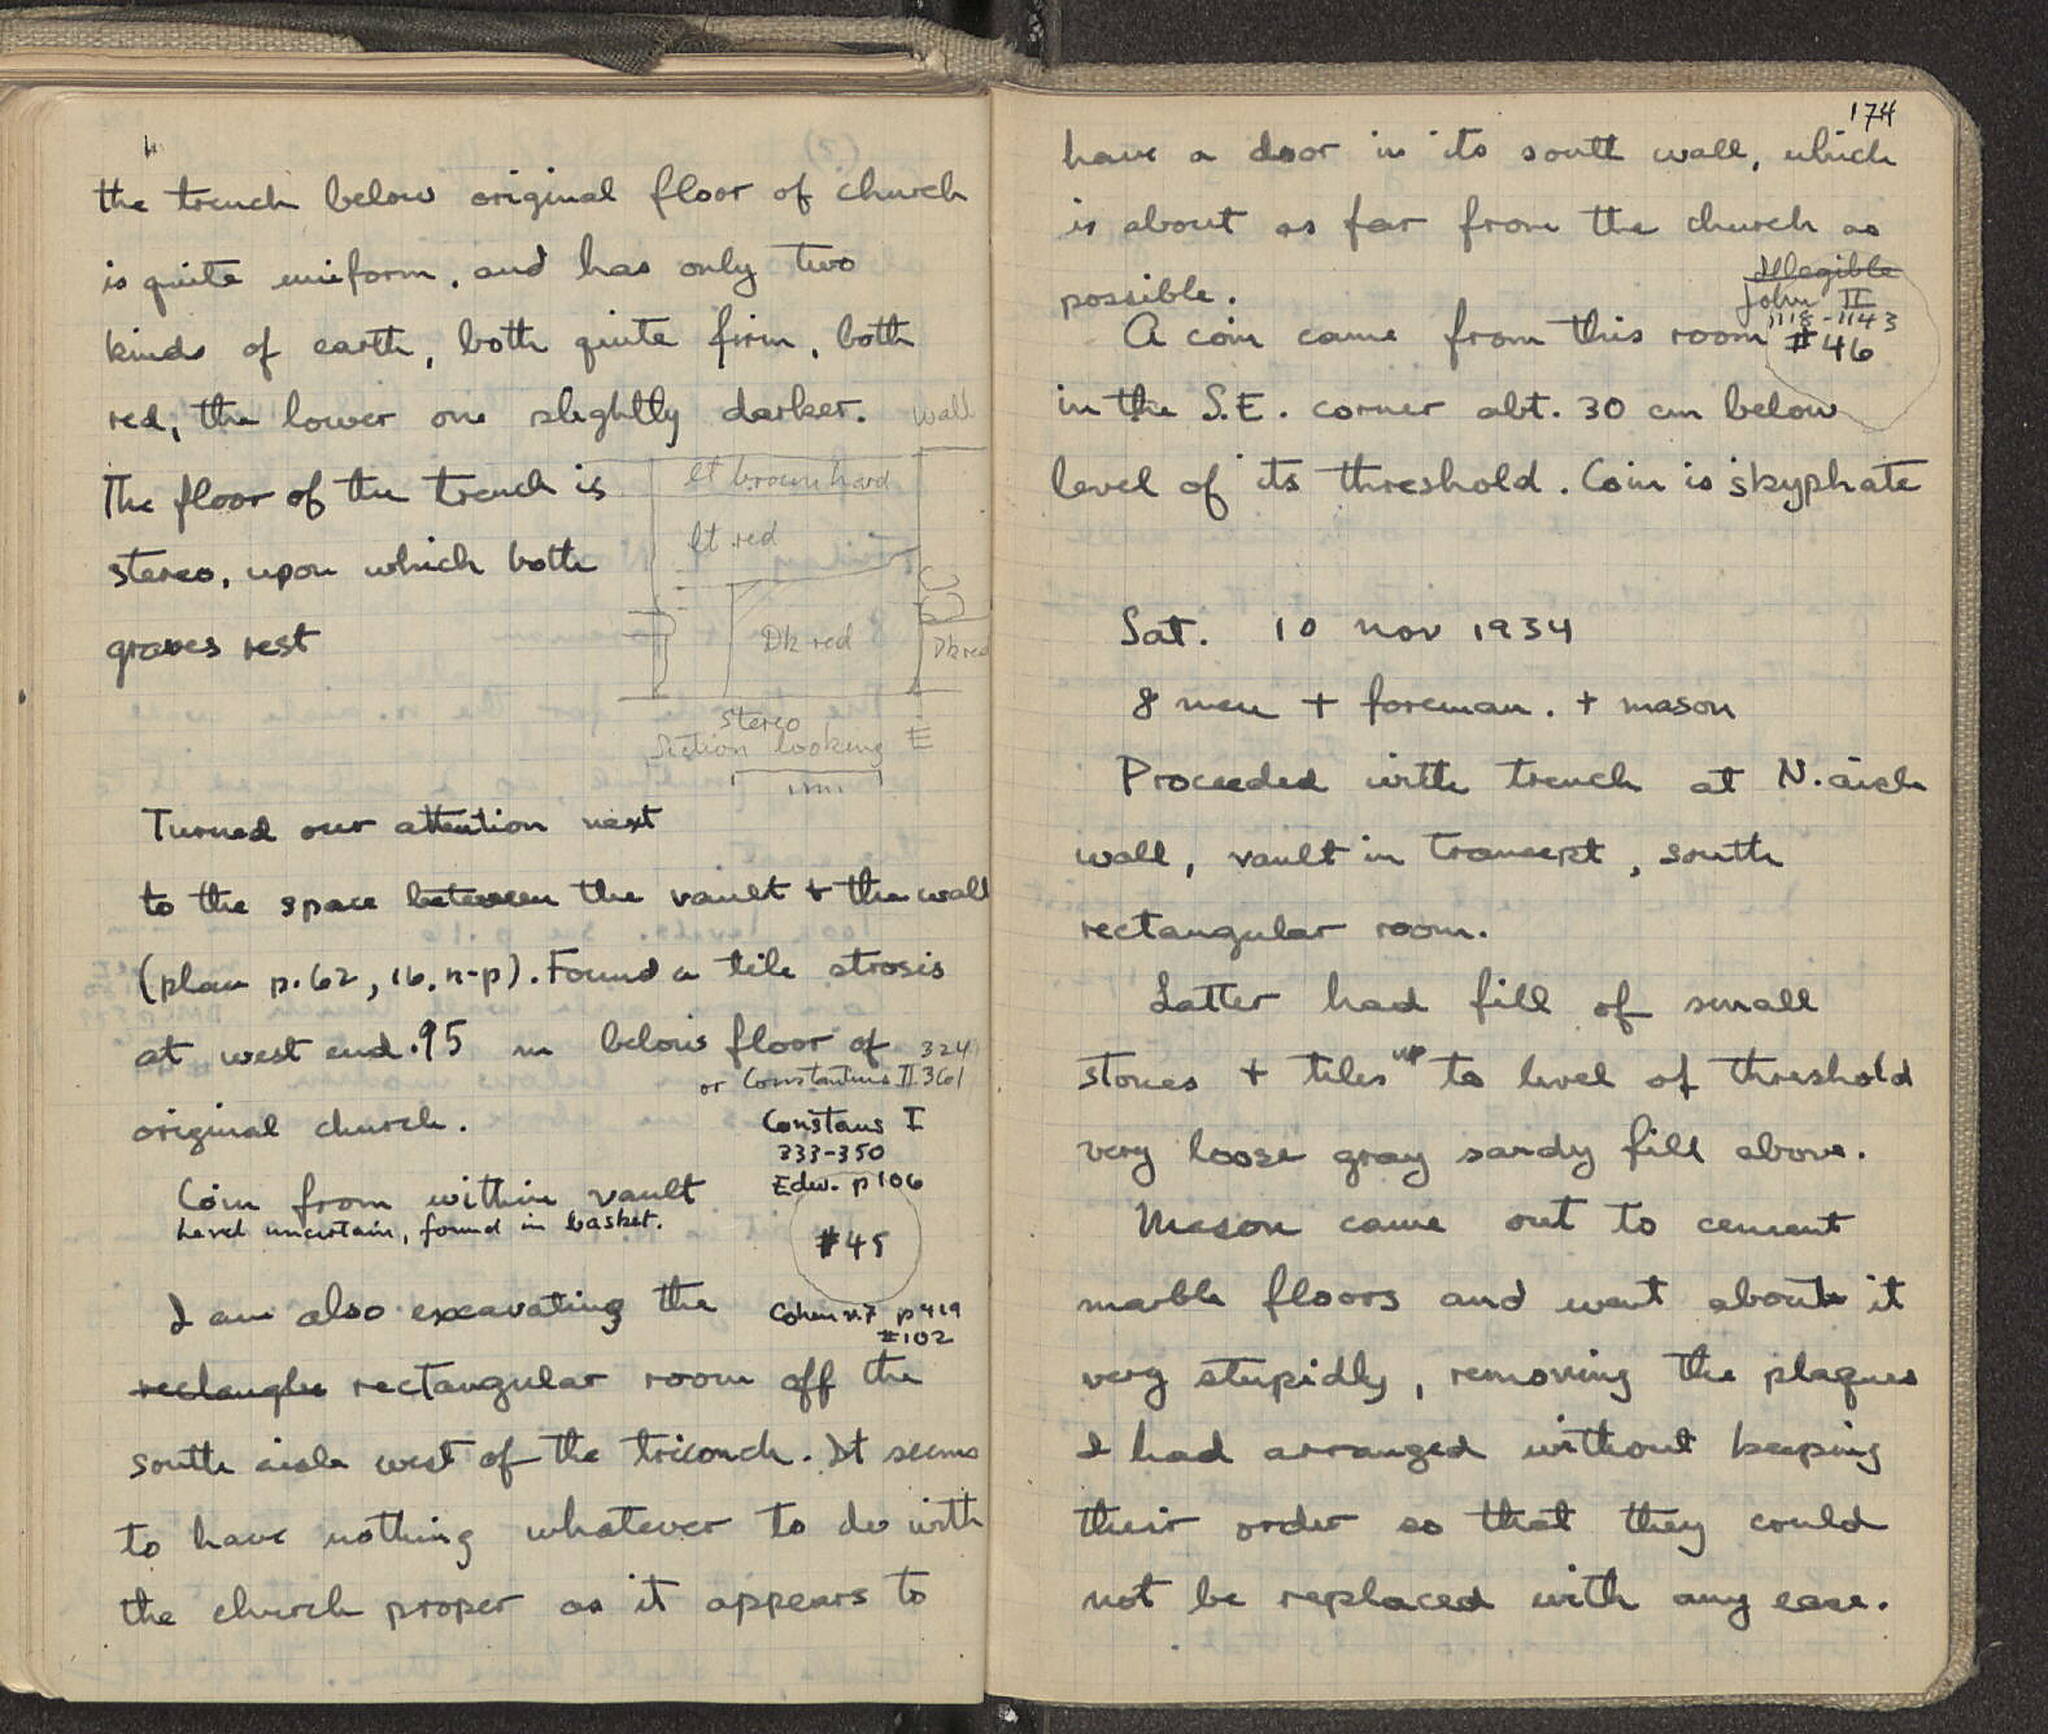 the trench below original floor of church
is quite uniform, and has only two
kinds of earth, both quite firm, both
red, the lower one slightly darker.
The floor of the trench is
stereo, upon which both
graves rest
wall
lt brown hard
lt red
Dk red
Dk red
Stereo
Section looking E
1 m
Turned our attention next
to the space between the vault + the wall
(plan p. 62, 16, n-p). Found a tile strosis
at west end .95 m below floor of
original church.
324
or Constantius II 361
Constans I
333-350
Edw. p 106
#45
Cohen n7 p 419
#102
Coin from within vault
Level uncertain, found in basket.
I am also excavating the
rectangle rectangular room off the
south aisle west of the triconch. It seems
to have nothing whatever to do with
the church proper as it appears to
174
have a door in its south wall, which
is about as far from the church as
possible.
Illegible
John II
1118-1143
#46
A coin came from this room
in the S.E. corner abt. 30 cm below
level of its threshold. Coin is skyphate
Sat. 10 Nov 1934
8 men + foreman. + mason
Proceeded with trench at N. aisle
wall, vault in transept, south
rectangular room.
Latter had fill of small
stones + tiles up to level of threshold
very loose gray sandy fill above.
Mason came out to cement
marble floors and went about it
very stupidly, removing the plaques
I had arranged without keeping
their order so that they could
not be replaced with any ease.